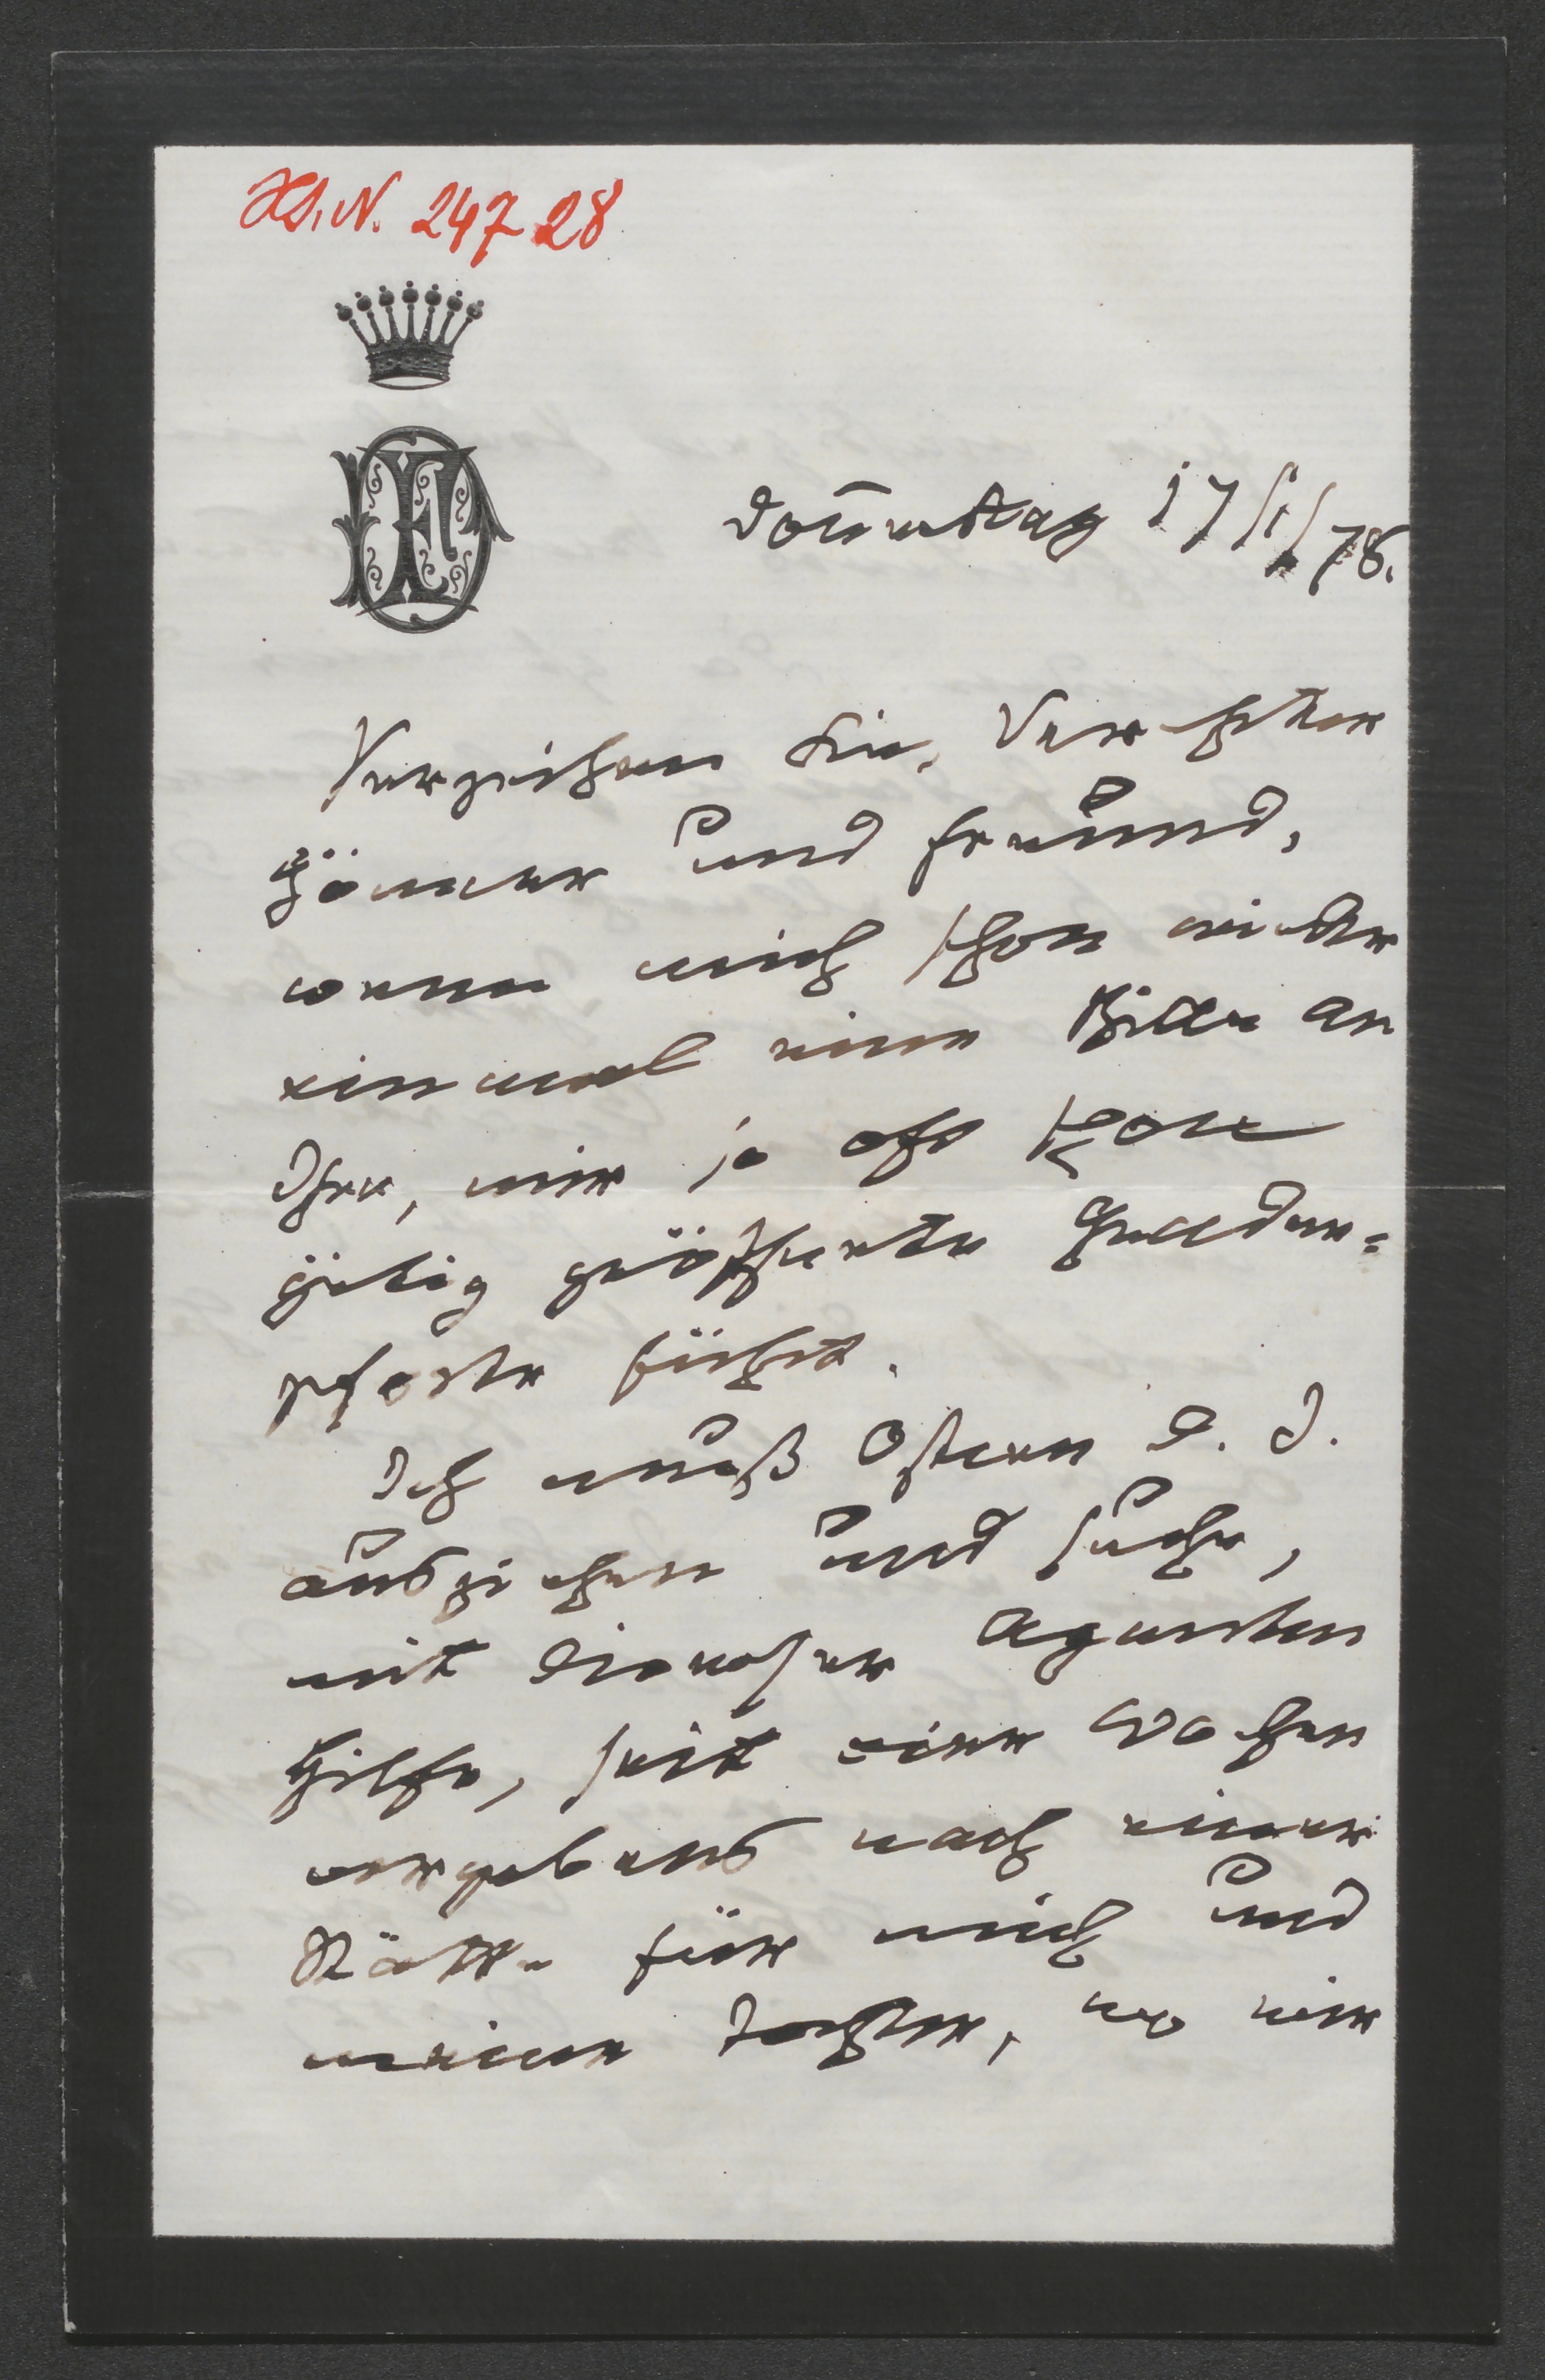 H.I.N. 24728
Donnerstag 17/1/78.
Verzeihen Sie, Verehrter
Gönner und Freund,
wenn mich schon wieder
einmal eine Bitte an
Ihre, mir so oft schon
gütig geöffnete Gnaden-
pforte führt.
Ich muß Ostern d. J.
ausziehen und suche,
mit diverser Agenten
Hilfe, seit vier Wochen
vergebens nach einer
Stätte für mich und
meine Tochter, wo wir